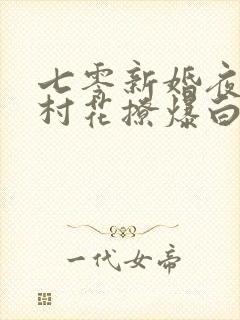 七零新婚夜
村花撩爆白
一代女帝